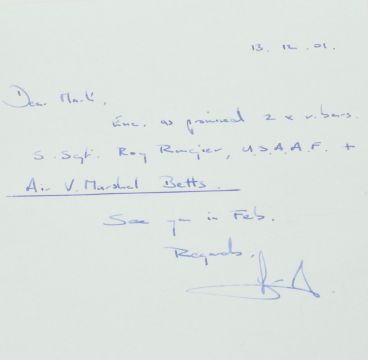 13. 12. 01.
Dear Mark,
Enc. as promised 2 x r. bars.
S. Sgt. Roy, U.S.A.A.F. +
Air V. Marshal Betts.
See you in Feb.
Regards,